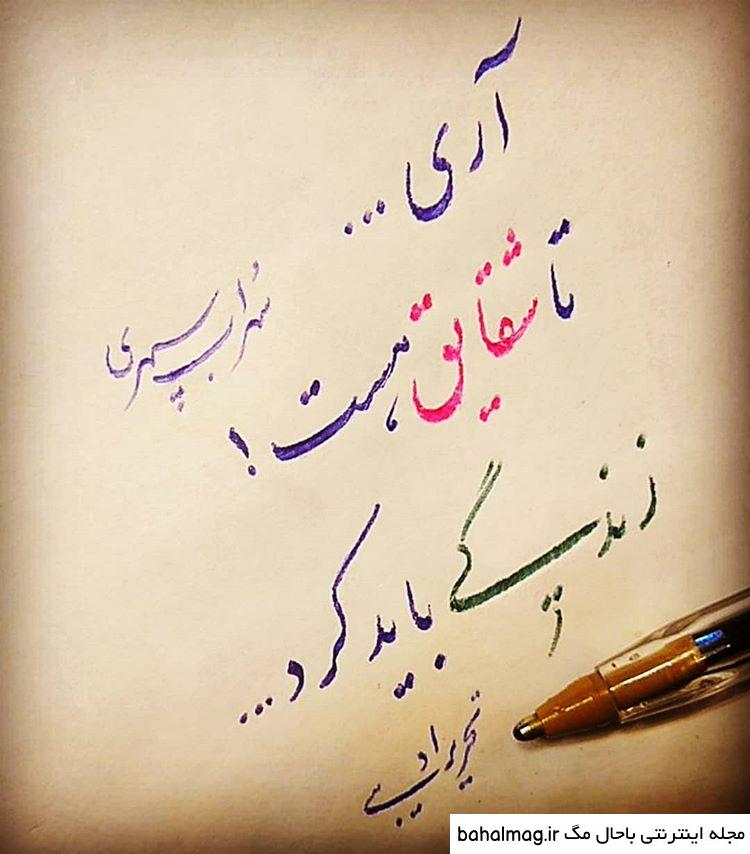 آری ...
تا شقایق هست !
سهراب سپهری
زندگی باید کرد ...
تحریر ادیبی
مجله اینترنتی باحال مگ bahalmag.ir